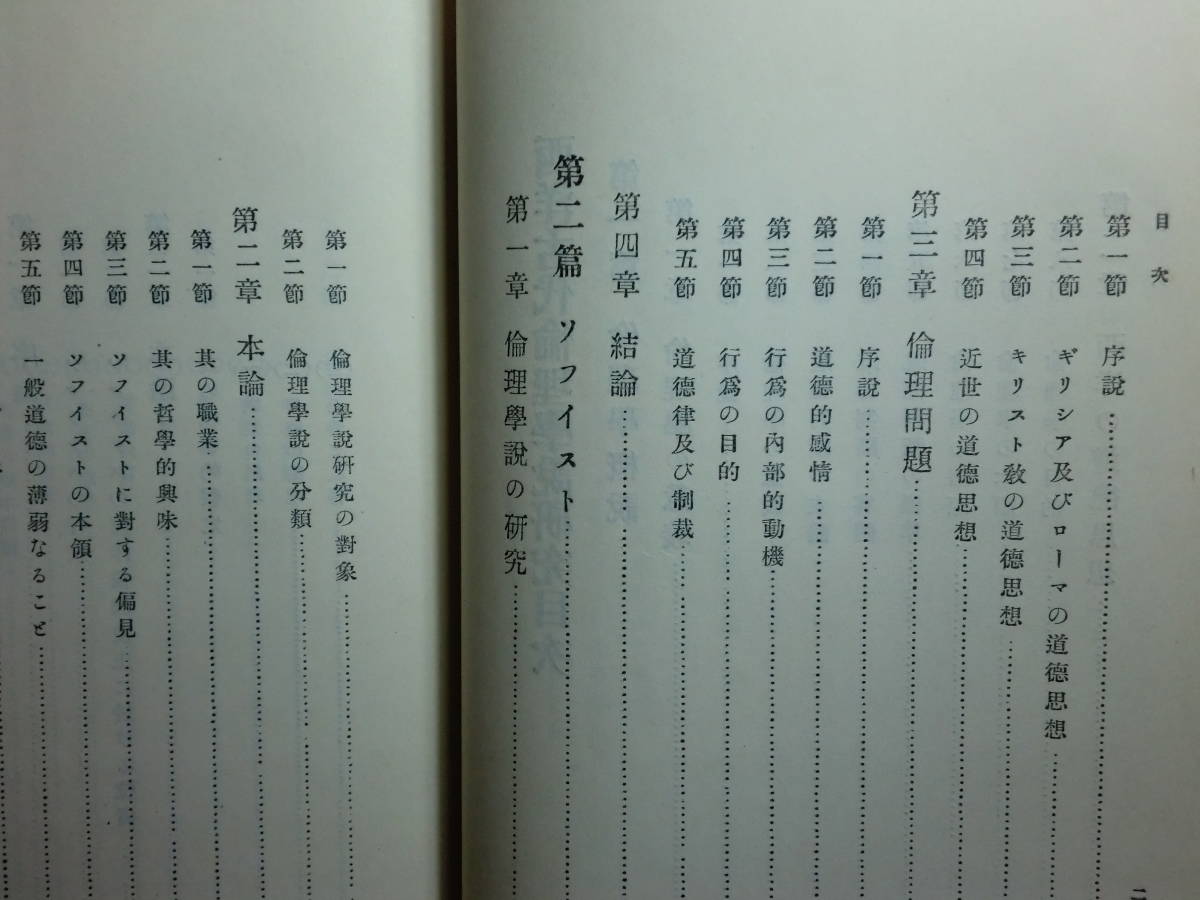 目次
第一節 序說
第二節 ギリシア及びローマの道德思想
第三節 キリスト敎の道德思想
第四節 近世の道德思想
第三章 倫理問題
第一節 序說
第二節 道德的感情
第三節 行爲の內部的動機
第四節 行爲の目的
第五節 道德律及び制裁
第四章 結論
第二篇 ソフイスト
第一章 倫理學說の硏究
第一節 倫理學說硏究の對象
第二節 倫理學說の分類
第二章 本論
第一節 其の職業
第二節 其の哲學的興味
第三節 ソフイストに對する偏見
第四節 ソフイストの本領
第五節 一般道德の薄弱なること